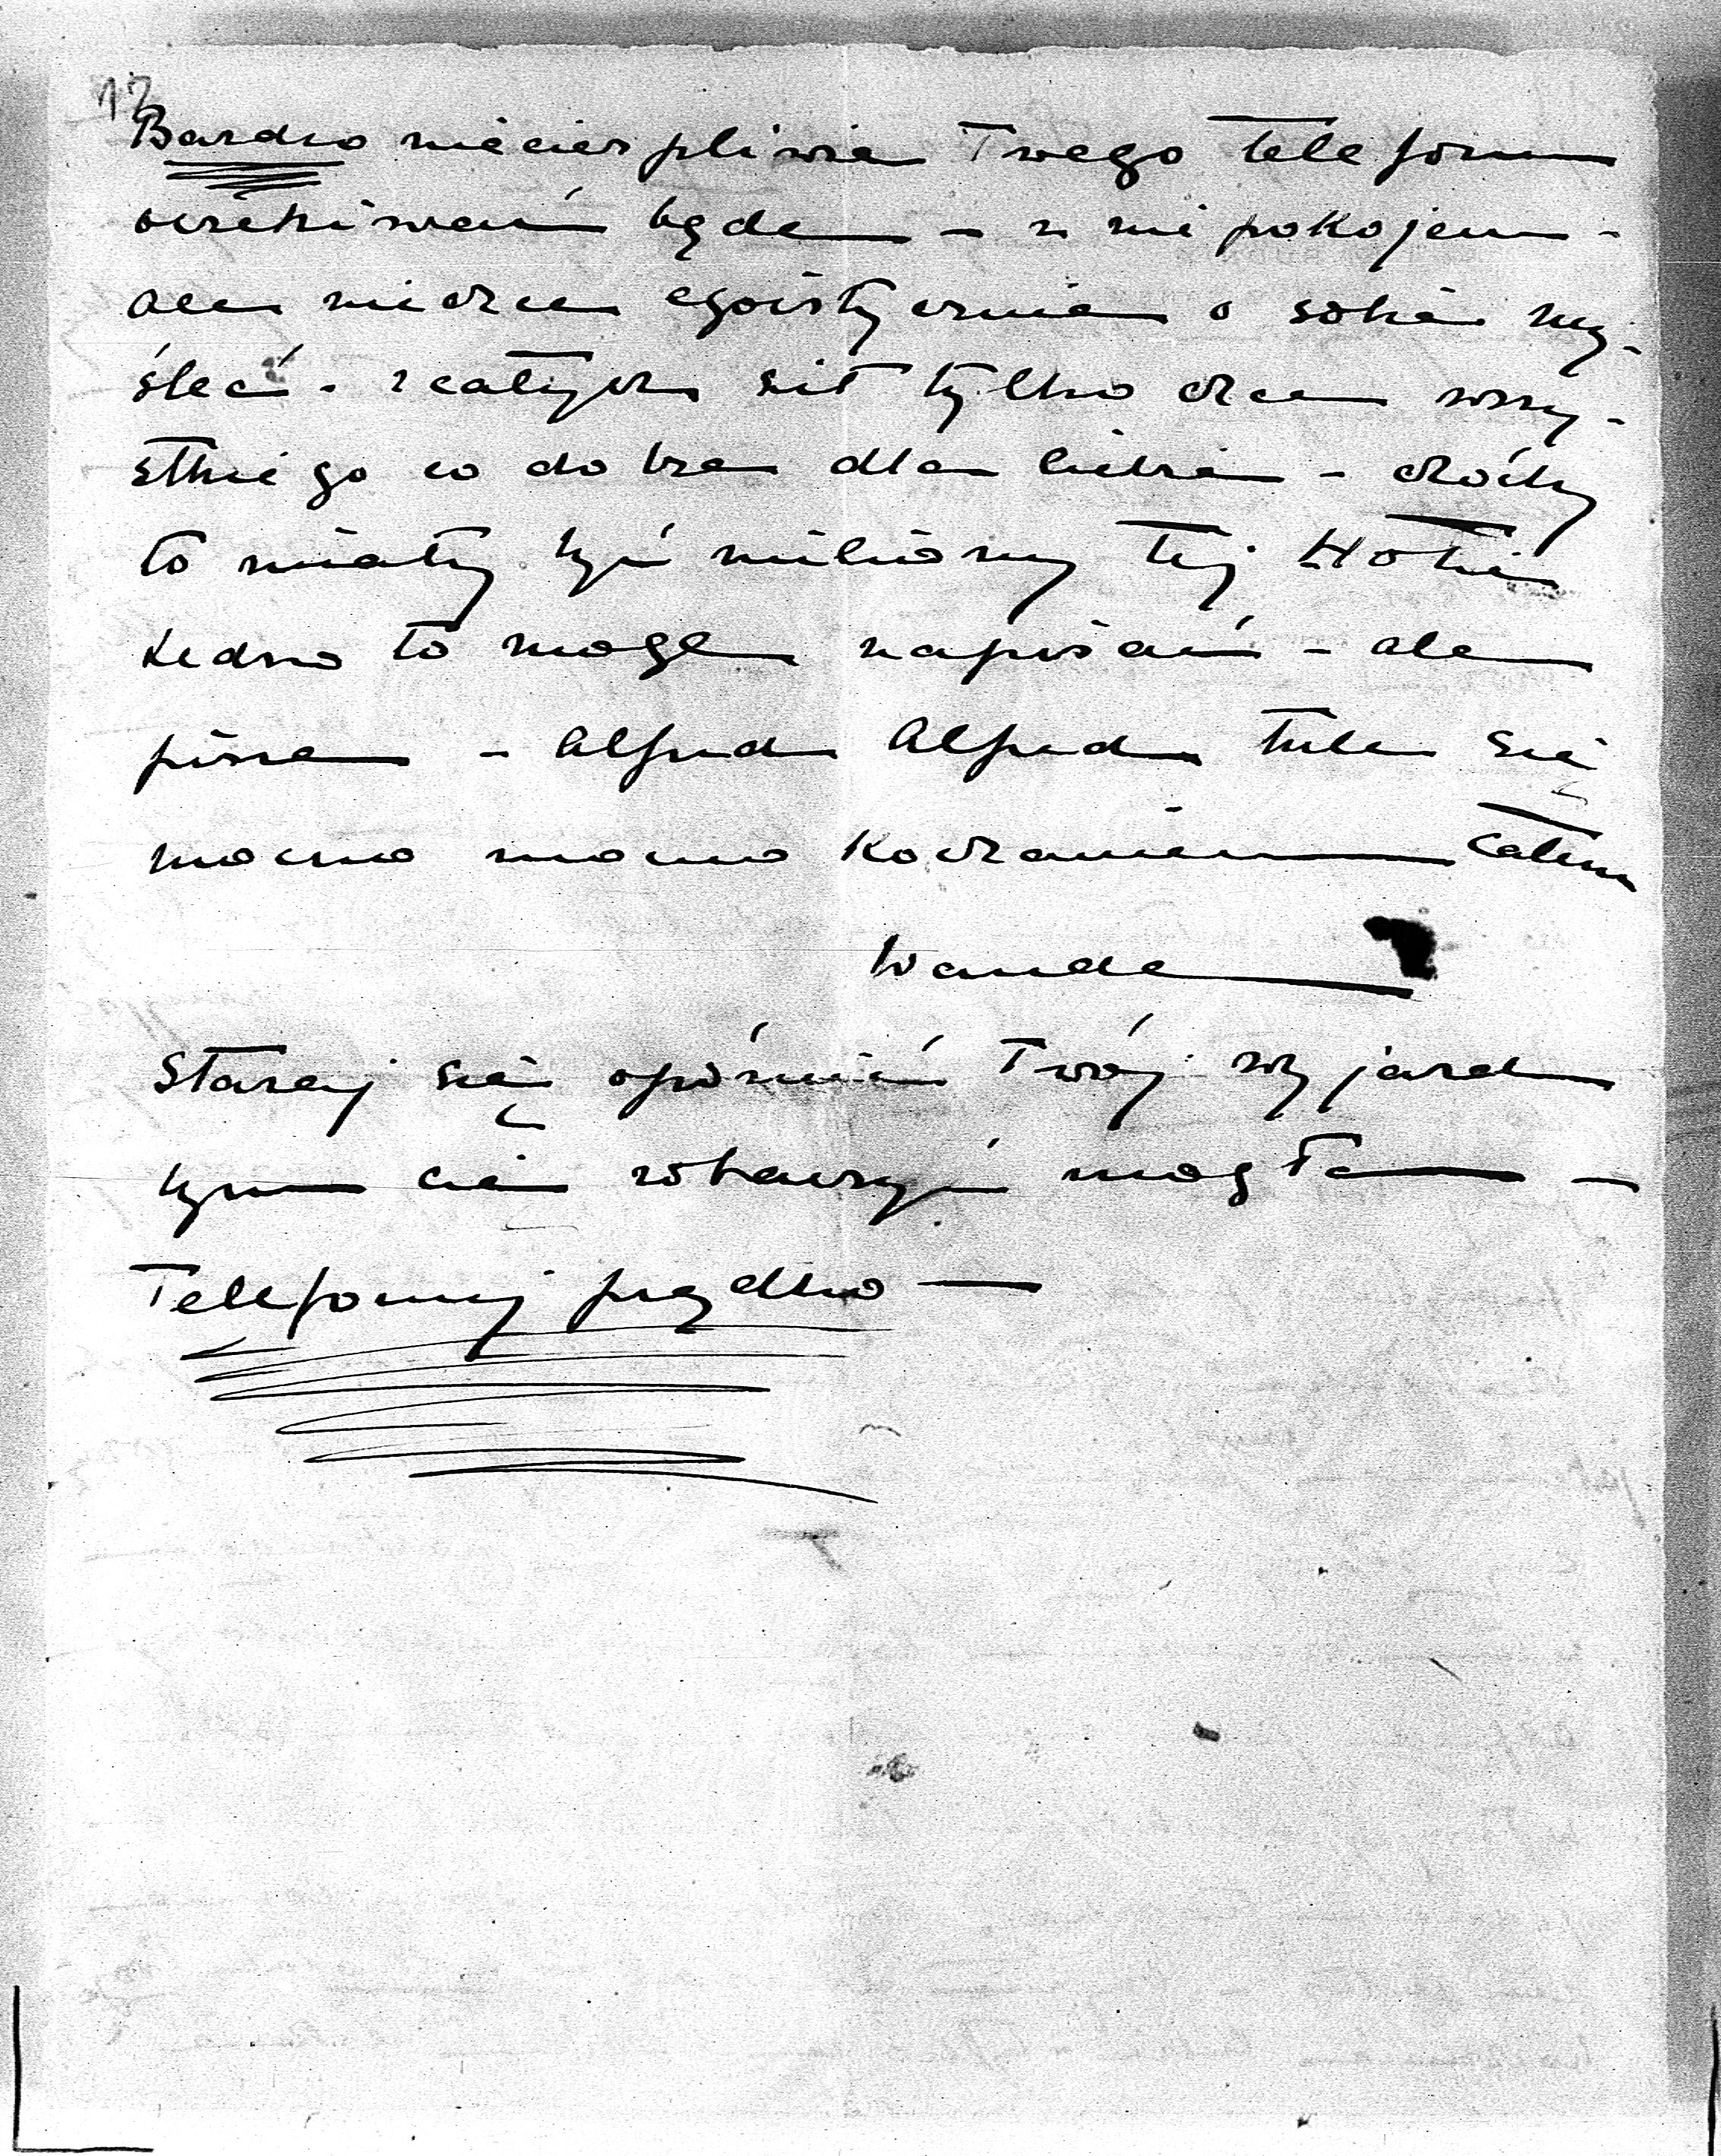 12
Bardzo niecierpliwie Twego telefonu
oczekiwać będę - z niepokojem -
ale nie chcę egoistycznie o sobie my-
śleć - z całych sił tylko chcę wszy-
stkiego co dobre dla Ciebie - choćby
to miały być miliony tej
Jedno to mogę napisać - ale
piszę - Alfred Alfred tulę się
mocno mocno kochaniem całem
Wanda
Staraj się opóźnić Twój wyjazd
bym cię zobaczyć mogła -
Telefonuj prędko -